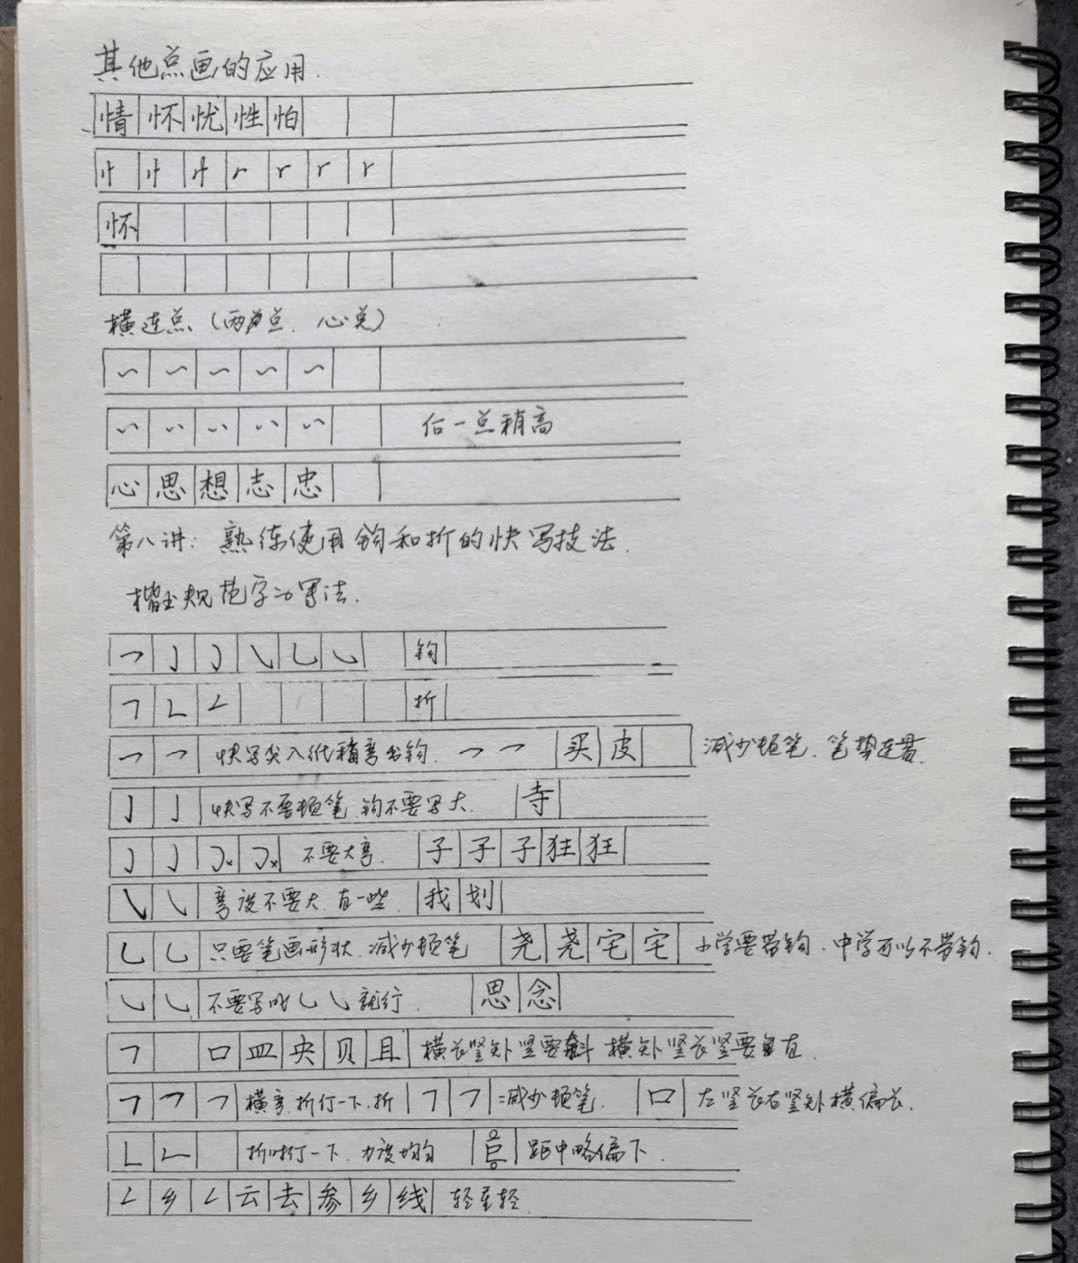 其他点画的应用.
情 怀 忧 性 怕
忄 忄 忄
怀
横连点（两点、心点）
后一点稍高
心 思 想 志 忠
第八讲：熟练使用钩和折的快写技法.
楷书规范字的写法.
钩
折
快写尖入纸稍弯出钩. 买 皮 减少顿笔、笔势连贯.
亅 亅 快写不要顿笔 钩不要写大. 寺
不要大弯. 子 子 子 狂 狂
弯度不要大 直一些. 我 划
乚 乚 只要笔画形状. 减少顿笔 尧 尧 宅 宅 小学要带钩. 中学可以不带钩.
不要写成 就行. 思 念
口 皿 央 贝 且 横长竖短竖要斜 横短竖长竖要垂直.
横弯.折行一下.折 减少顿笔. 口 左竖长右竖短横偏长.
折时行一下. 力度均匀 巨 距中略偏下.
乡 云 去 参 乡 线 轻重轻.